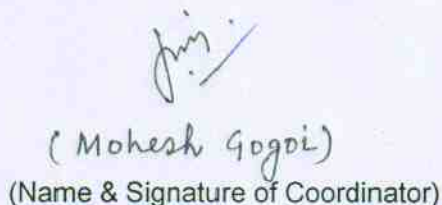 ( Mohesh Gogoi)
(Name & Signature of Coordinator)